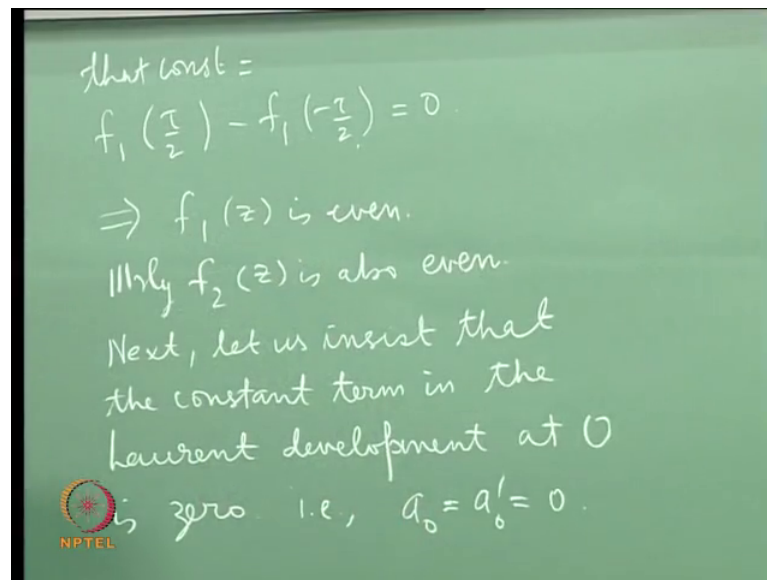 that const =
f₁(τ/2) - f₁(-τ/2) = 0.
⇒ f₁(z) is even.
Illrly f₂(z) is also even.
Next, let us insist that
the constant term in the
Laurent development at 0
is zero i.e., a₀ = a₀' = 0.
NPTEL